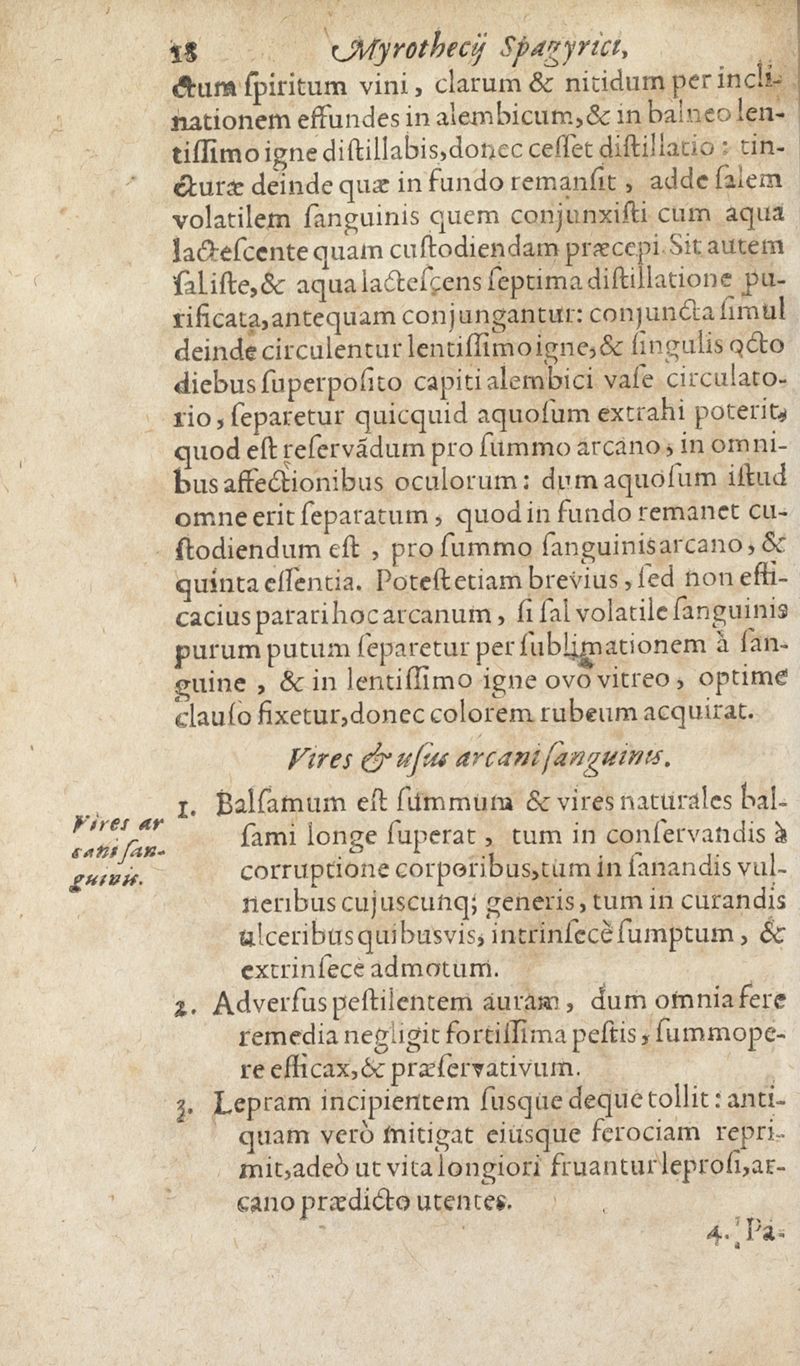 18 Myrothecij Spagyrici,
ctum ſpiritum vini, clarum & nitidum per incli-
nationem effundes in alembicum, & in balneo len-
tiſſimo igne diſtillabis, donec ceſſet diſtillatio: tin-
cturæ deinde quæ in fundo remanſit, adde ſalem
volatilem ſanguinis quem conjunxiſti cum aqua
lacteſcente quam cuſtodiendam præcepi. Sit autem
ſal iſte, & aqua lacteſcens ſeptima diſtillatione pu-
rificata, antequam conjungantur: conjuncta ſimul
deinde circulentur lentiſſimo igne, & ſingulis octo
diebus ſuperpoſito capiti alembici vaſe circulato-
rio, ſeparetur quicquid aquoſum extrahi poterit,
quod eſt reſervãdum pro ſummo arcano, in omni-
bus affectionibus oculorum: dum aquoſum iſtud
omne erit ſeparatum, quod in fundo remanet cu-
ſtodiendum eſt, pro ſummo ſanguinis arcano, &
quinta eſſentia. Poteſt etiam brevius, ſed non effi-
cacius parari hoc arcanum, ſi ſal volatile ſanguinis
purum putum ſeparetur per ſublimationem à ſan-
guine, & in lentiſſimo igne ovo vitreo, optime
clauſo fixetur, donec colorem rubeum acquirat.
Vires & uſus arcani ſanguinis.
Vires ar
cani ſan-
guinis.
1. Balſamum eſt ſummum & vires naturales bal-
ſami longe ſuperat, tum in conſervandis à
corruptione corporibus, tum in ſanandis vul-
neribus cujuscunq; generis, tum in curandis
ulceribus quibusvis, intrinſecè ſumptum, &
extrinſece admotum.
2. Adverſus peſtilentem auram, dum omnia fere
remedia negligit fortiſſima peſtis, ſummope-
re efficax, & præſervativum.
3. Lepram incipientem ſusque deque tollit: anti-
quam verò mitigat eiusque ferociam repri-
mit, adeò ut vita longiori fruantur leproſi, ar-
cano prædicto utentes.
4. Pa-